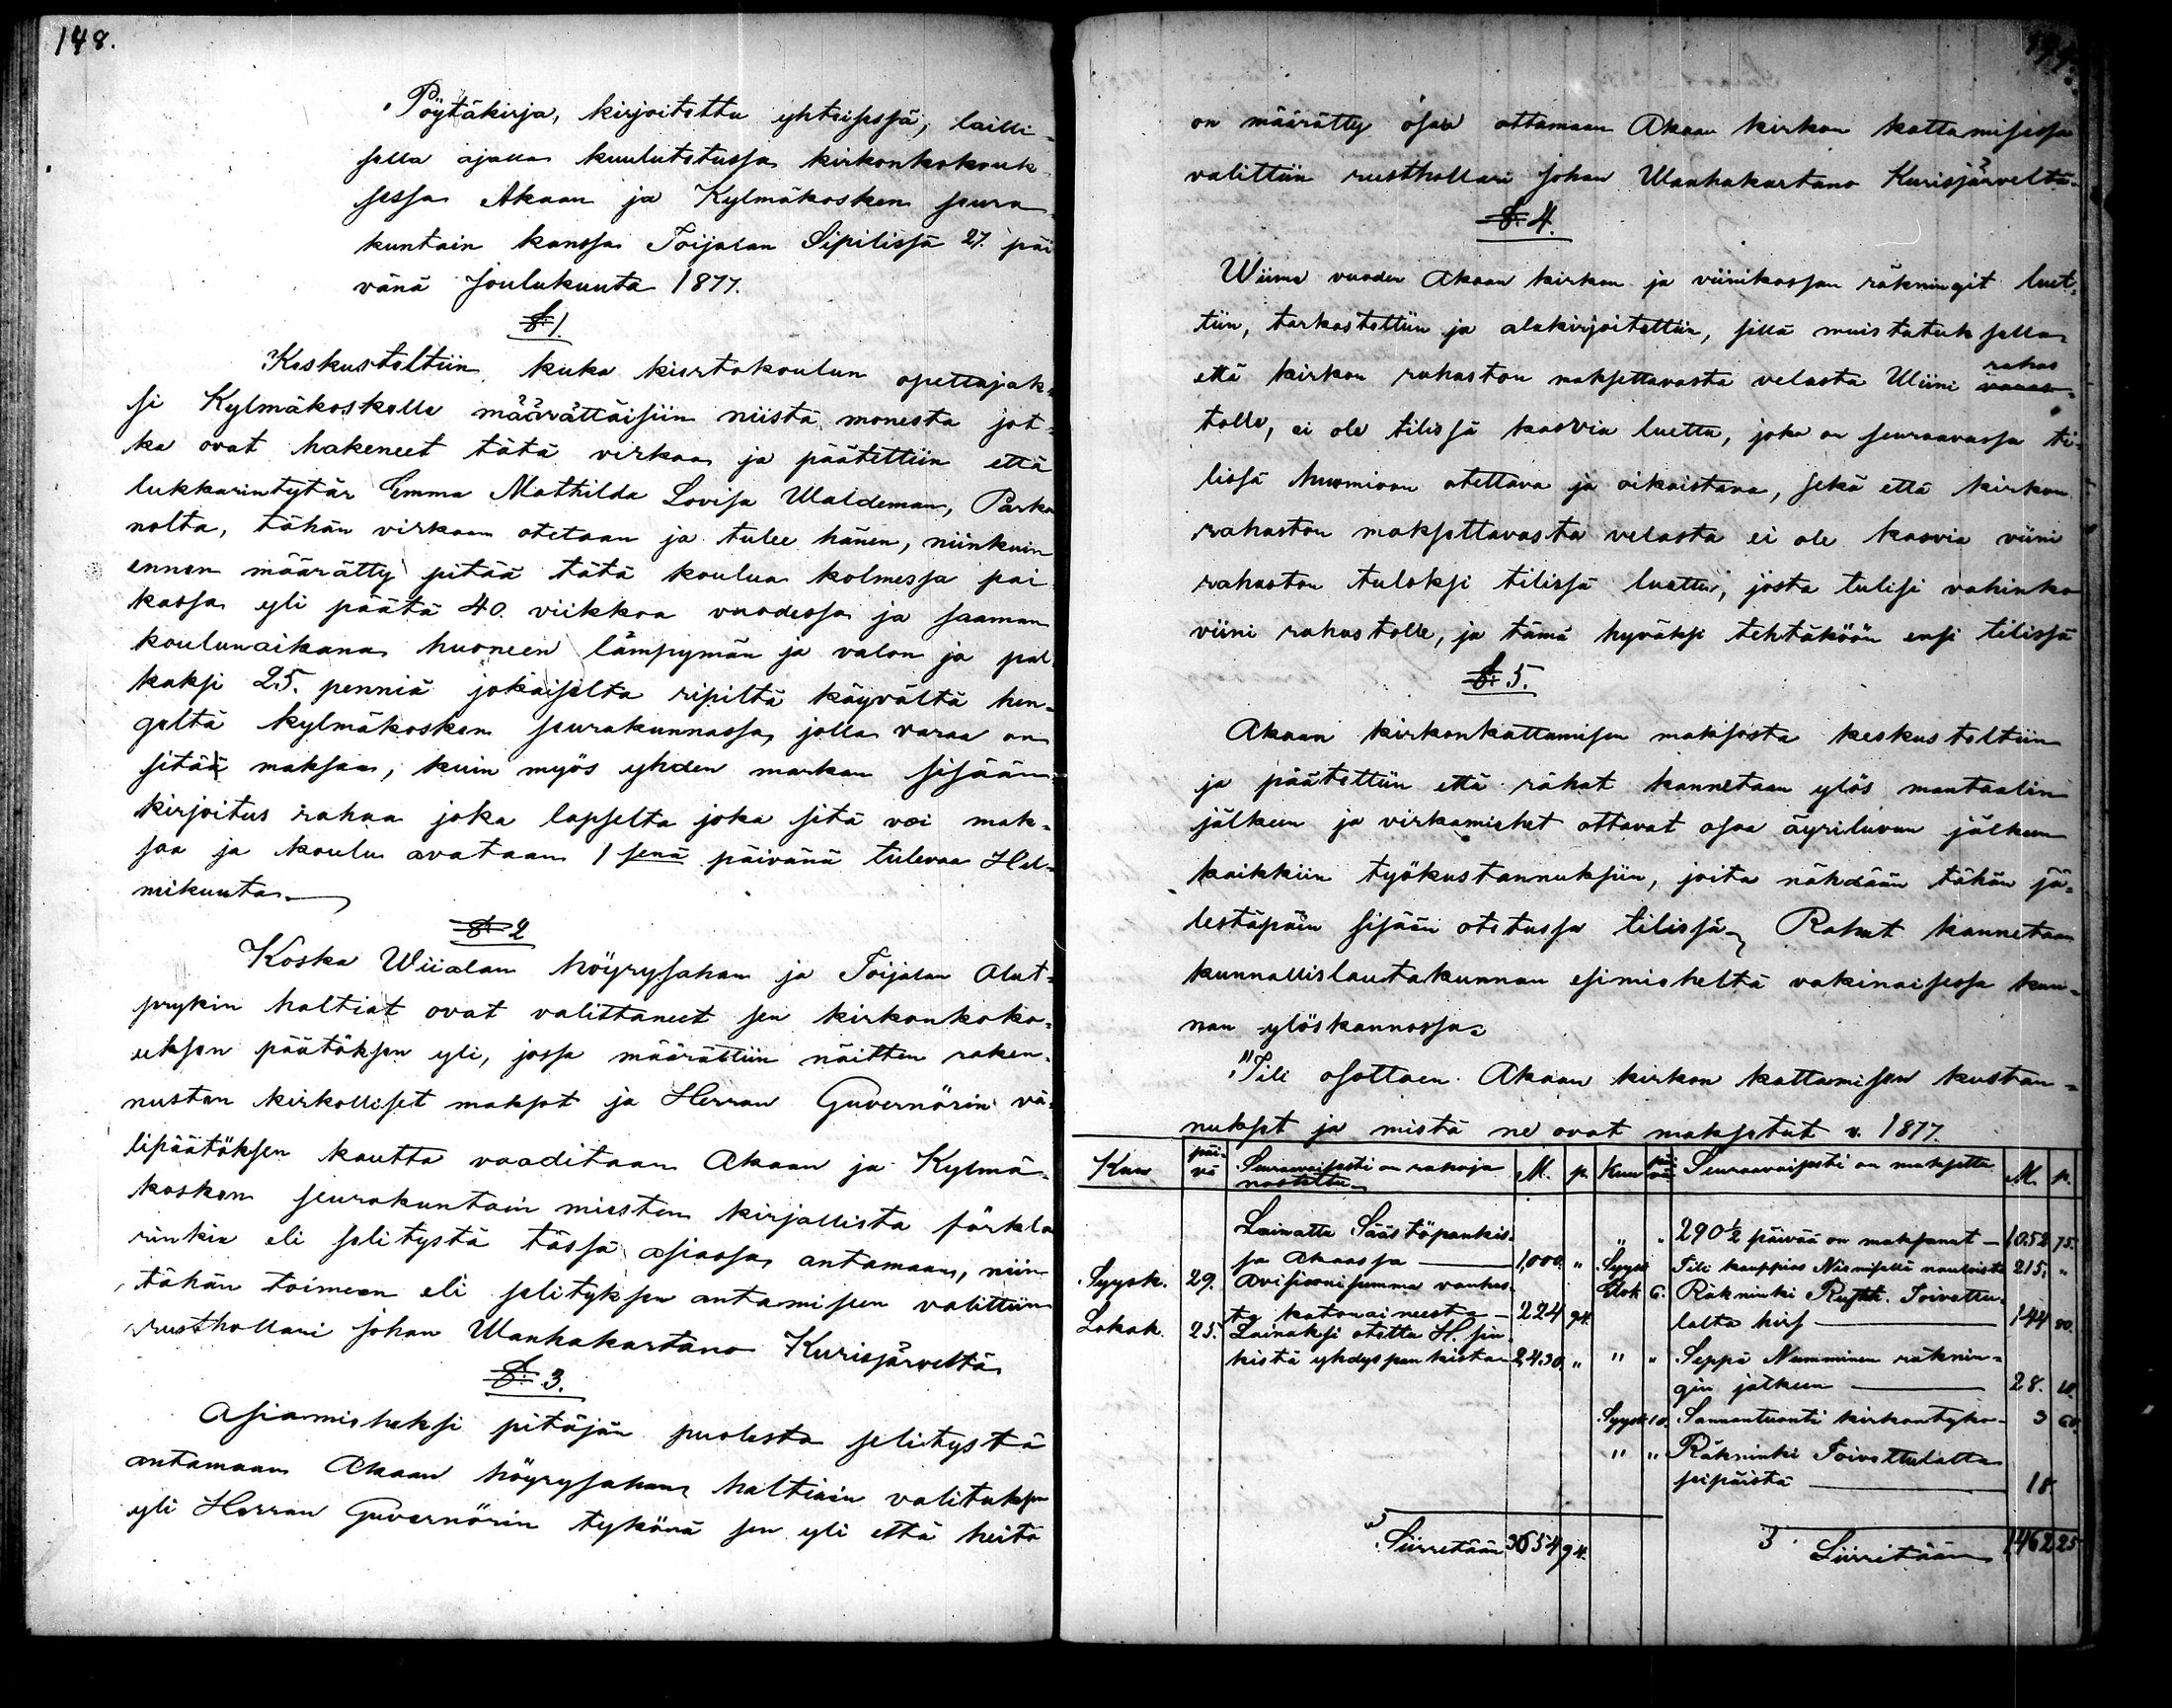 148.
Pöytäkirja, kirjoitettu yhteisessä, lailli-
sella ajalla kuulutetussa kirkonkokouk-
sessa Akaan ja Kylmäkosken seura-
kuntain kanssa Toijalan Sipilissä 27. päi
vänä Joulukuuta 1877.
§ 1.
Keskusteltiin kuka kiertokoulun opettajak-
si Kylmäkoskelle määrättäisiin niistä monesta jot-
ka ovat hakeneet tätä virkaa ja päätettiin että
lukkarintytär Emma Mathilda Lovisa Waldeman, Parka
nolta, tähän virkaan otetaan ja tulee hänen, niinkuin
ennen määrätty pitää tätä koulua kolmessa pai
kassa yli päätä 40. viikkoa vuodessa ja saaman
koulunaikana huoneen lämpymän ja valon ja pal
kaksi 25. penniä jokaiselta ripiltä käyvältä hen-
geltä kylmäkosken seurakunnassa, jolla varaa on
sitää maksaa, kuin myös yhden markan sisään-
kirjoitus rahaa joka lapselta joka sitä voi mak-
saa ja koulu avataan 1 senä päivänä tulevaa Hel-
mikuuta.
§ 2
Koska Wiialan höyrysahan ja Toijalan Alut-
prykin haltiat ovat valittaneet sen kirkonkoko-
uksen päätöksen yli, jossa määrättiin näitten raken-
nusten kirkolliset maksot ja Herran Guvernörin vä-
lipäätöksen kautta vaaditaan Akaan ja Kylmä-
kosken seurakuntain miesten kirjallista förkla
rinkia eli selitystä tässä asiassa antamaan, niin
tähän toimeen eli selityksen antamiseen valittiin
rusthollari Johan Wanhakartano Kurisjärveltä
§ 3.
Asiamieheksi pitäjän puolesta selitystä
antamaan Akaan höyrysahan haltiain valituksen
yli Herran Guvernörin tykönä sen yli että heitä
on määrätty osaa ottamaan Akaan kirkon kattamisessa
valittiin rusthollari Johan Wanhakartano Kurisjärveltä-
§ 4.
Wiime vuoden Akaan kirkon ja viinikassan räkningit luet-
tiin, tarkastettiin ja alakirjoitettiin, sillä muistutuksella
että kirkon rahaston maksettavasta velasta Wiini rahas
tolle, ei ole tilissä kasvia luettu, joka on seuraavassa ti-
lissä huomioon otettava ja oikaistava, sekä että kirkon
rahaston maksettavasta velasta ei ole kasvia viini
rahaston tuloksi tilissä luettu, josta tulisi vahinko
viini rahastolle, ja tämä hyväksi tehtäköön ensi tilissä
§ 5.
Akaan kirkonkattamisen maksosta keskusteltiin
ja päätettiin että rahat kannetaan ylös mantaalin
jälkeen ja virkamiehet ottavat osaa äyriluvun jälkeen
kaikkiin työkustannuksiin, joita nähdään tähän jä-
lestäpäin sisään otetussa tilissä. Rahat kannetaan
kunnallislautakunnan esimieheltä vakinaisessa kun-
nan ylöskannossa.
"Tili osottaen Akaan kirkon kattamisen kustan-
nukset ja mistä ne ovat maksetut v. 1877.
Kuu päi-vä Seuraavaisesti on rahoja nostettu M. p. Kuu päi vä Seuraavaisesti on maksettu M. p.
Lainattu Säästöpankis-
sa Akaassa — 1,000. "
Syysk. 29. Avisioonisumma vanhas-
ta katonaineesta — 224 94.
Lokak. 25. Lainaksi otettu H. sin
kistä yhdyspankista 2,430. "
Siirretään 3654 94.
" " 290 1/2 päivää on maksanut — 1052 75.
Syysk Tili kauppias Niemiseltä nauloista 215. "
Elok 6. Räkninki Rusth. Toivottu-
lalta hirs — 144 80.
" " Seppä Numminen räknin-
gin jälkeen — 28. 10.
Syysk 10. Sannantuonti kirkontykö- 3 60.
" " Räkninki Toivottulalta
seipäistä — 18.
Siirretään 1462 25